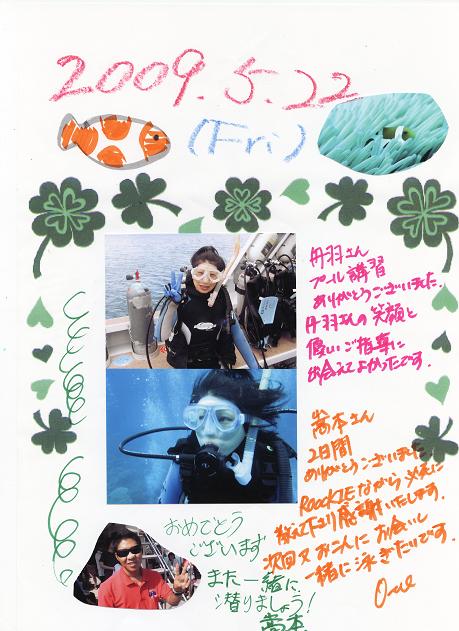 2009.5.22
(Fri)
丹羽さん
プール講習
ありがとうございました.
丹羽さんの笑顔と
優しいご指導に
出会えてよかったです.
嵩本さん
2日間
ありがとうございました
ながら
教えて下さり感謝いたします.
次回又 にお会いし
一緒に泳ぎたいです.
おめでとう
ございます
また一緒に
潜りましょう!
嵩本.